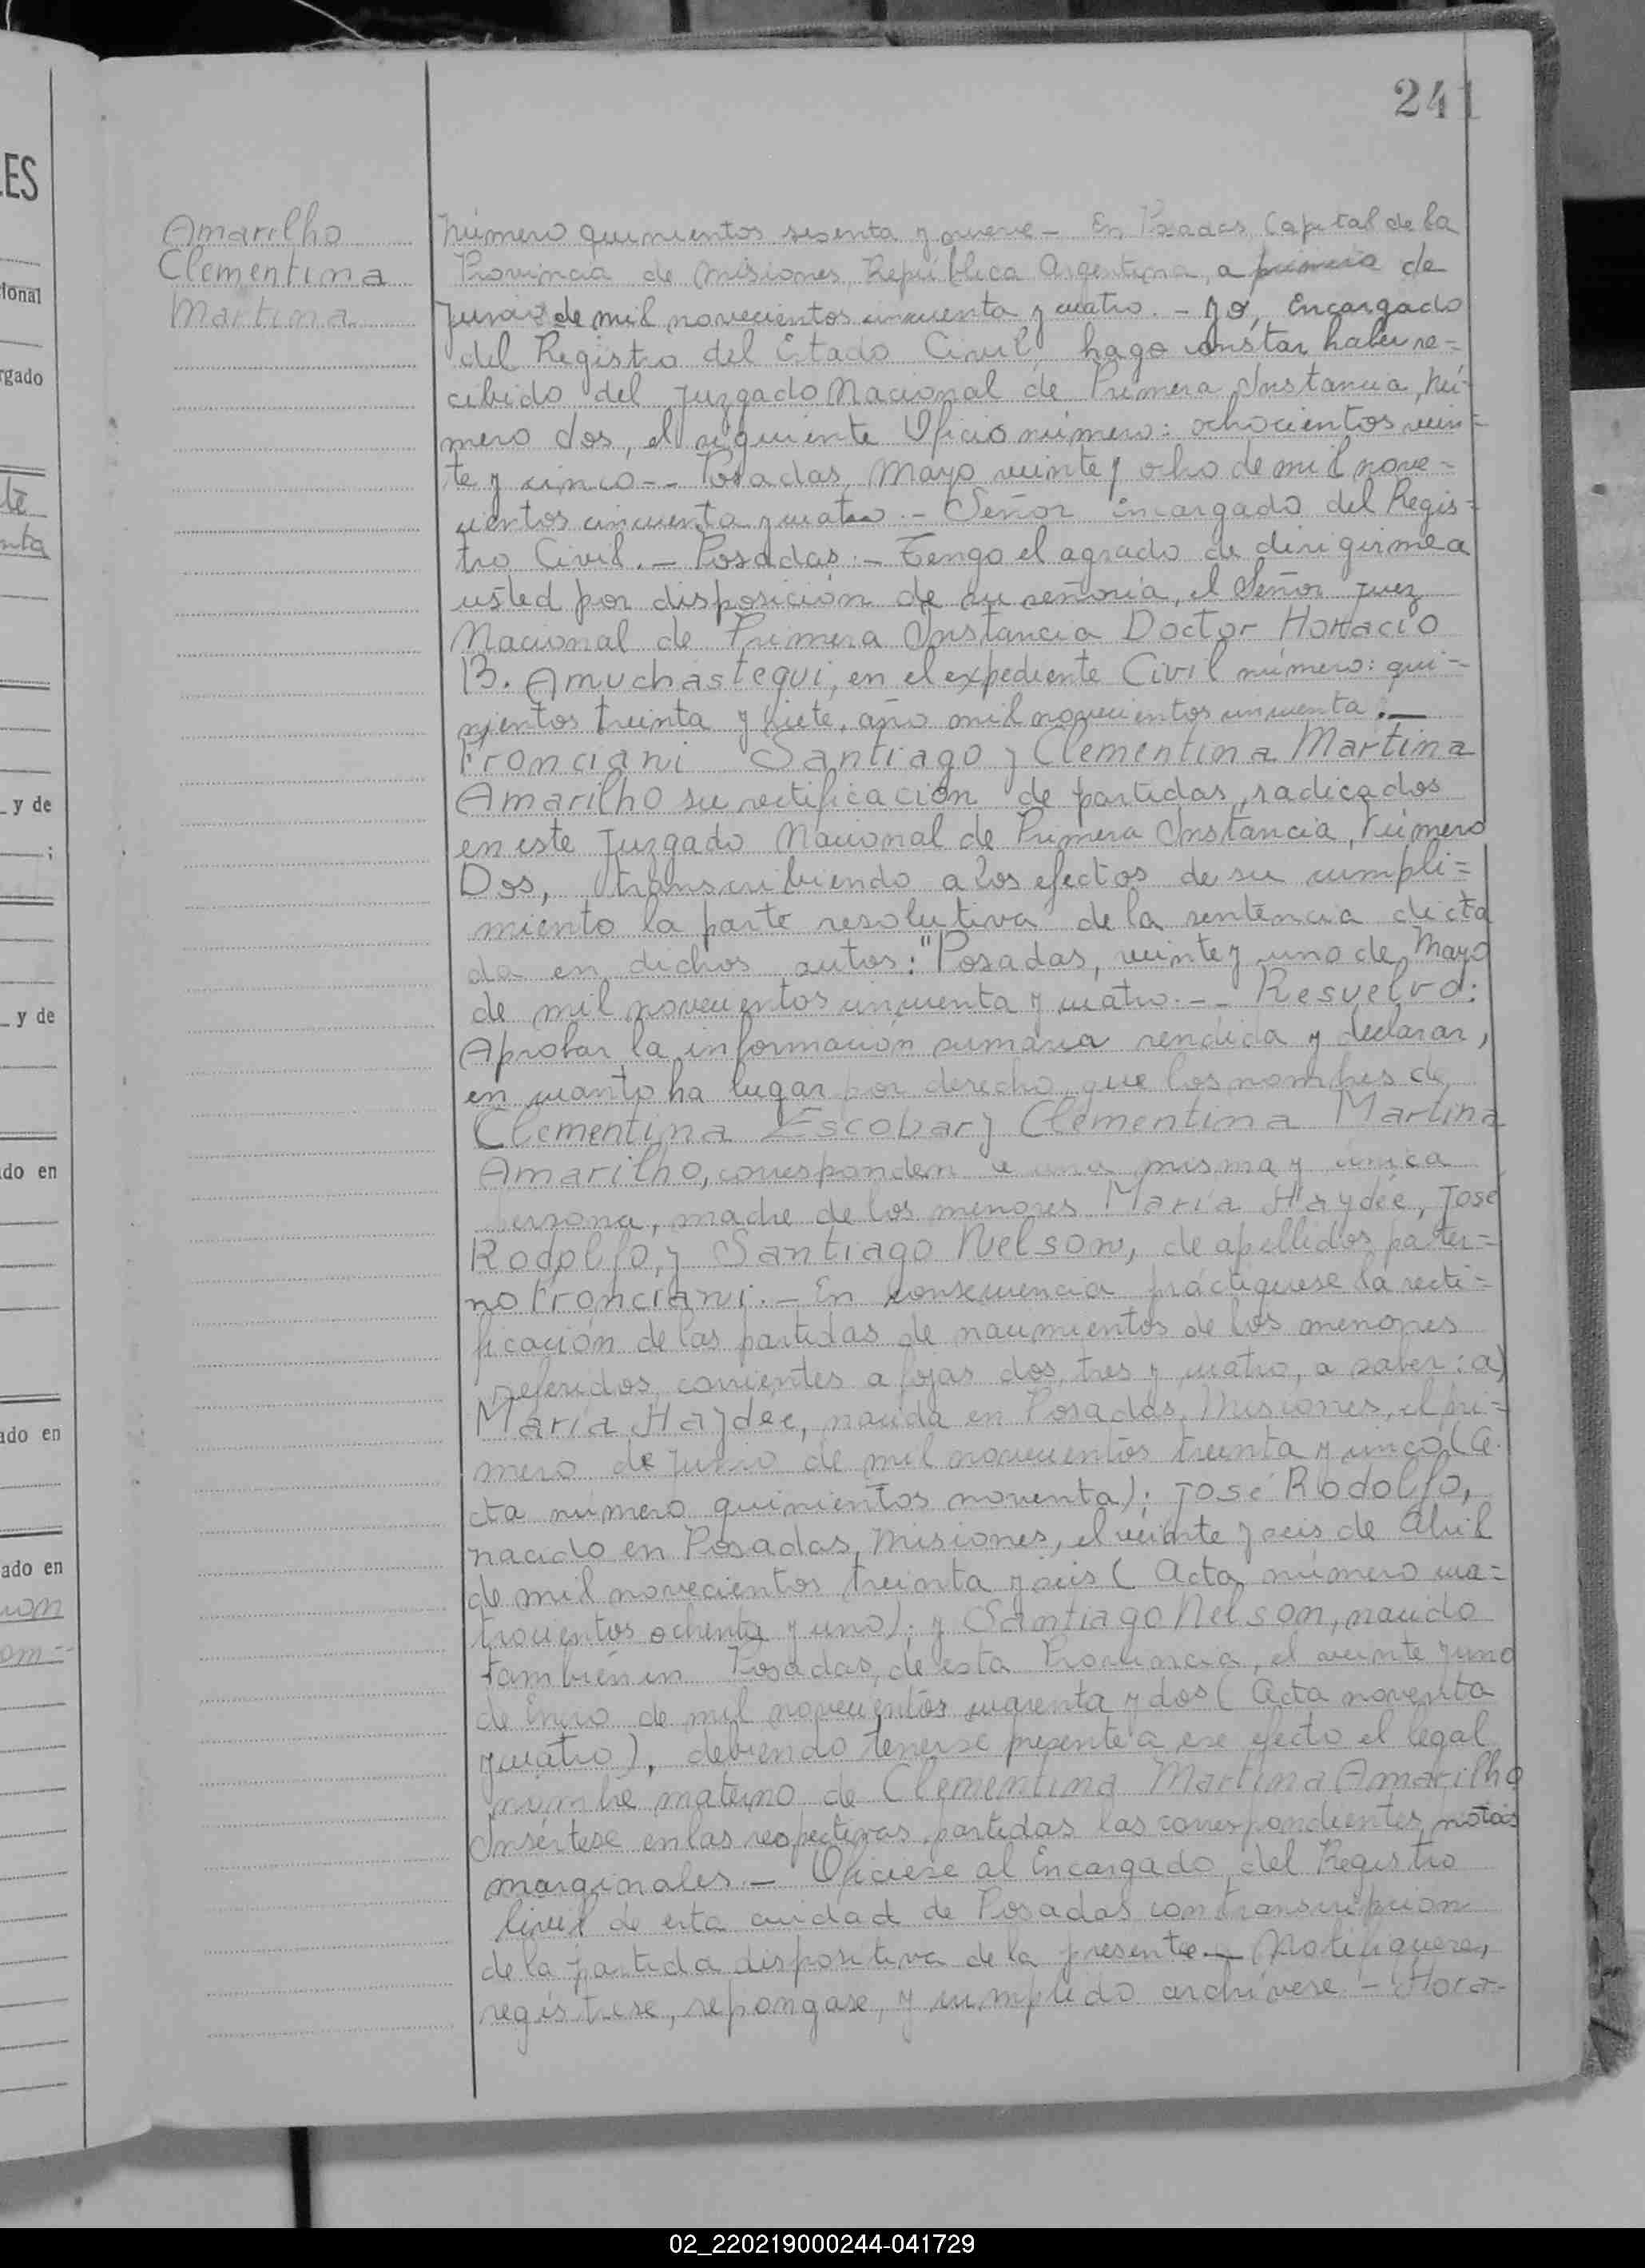 241
Amarilho
Clementina
Martina
Número quinientos sesenta y nueve - En Posadas, Capital de la
Provincia de Misiones, República Argentina, a primero de
Junio de mil novecientos cincuenta y cuatro. - Yo, Encargado
del Registro del Estado Civil, hago constar haber re=
cibido del Juzgado Nacional de Primera Instancia, nú-
mero dos, el siguiente Oficio número: ochocientos vein-
te y cinco -- Posadas, Mayo veinte y ocho de mil nove=
cientos cincuenta y cuatro. - Señor Encargado del Regis=
tro Civil. - Posadas. - Tengo el agrado de dirigirme a
usted por disposición de su señoria, el Señor Juez
Nacional de Primera Instancia Doctor Horacio
B. Amuchastegui, en el expediente Civil número: qui-
nientos treinta y siete, año mil novecientos cincuenta. -
Fronciani Santiago y Clementina Martina
Amarilho su rectificación de partidas, radicados
en este Juzgado Nacional de Primera Instancia, Número
Dos, transcribiendo a los efectos de su cumpli=
miento la parte resolutiva de la sentencia dicta
da en dichos autos: "Posadas, veinte y uno de Mayo
de mil novecientos cincuenta y cuatro. -- Resuelvo:
Aprobar la información sumaria rendida y declarar,
en cuanto ha lugar por derecho que los nombres de
Clementina Escobar y Clementina Martina
Amarilho, corresponden a una misma y única
persona, madre de los menores María Haydée, José
Rodolfo, y Santiago Nelson, de apellidos pater=
no Fronciani. - En consecuencia práctiquese la recti=
ficación de las partidas de nacimientos de los menores
referidos, corrientes a fojas dos, tres y cuatro, a saber: a)
María Haydee, nacida en Posadas, Misiones, el pri=
mero de Junio de mil novecientos treinta y cinco (a
cta número quinientos noventa); José Rodolfo,
nacido en Posadas, Misiones, el veinte y seis de Abril
de mil novecientos treinta y seis (Acta número cua=
trocientos ochenta y uno); y Santiago Nelson, nacido
también en Posadas, de esta Provincia, el veinte y uno
de Enero de mil novecientos cuarenta y dos (Acta noventa
y cuatro), debiendo tenerse presente a ese efecto el legal
nombre materno de Clementina Martina Amarilho
Insértese en las respectivas partidas las correspondientes notas
marginales. - Oficiese al Encargado del Registro
Civil de esta ciudad de Posadas con transcripcion
de la partida dispositiva de la presente. - Notifiquese,
regístrese, repongase, y cumplido archívese. - Hora-
ES
ional
rgado
te
nta
y de
;
y de
do en
ado en
ado en
ion
om=
02_220219000244-041729